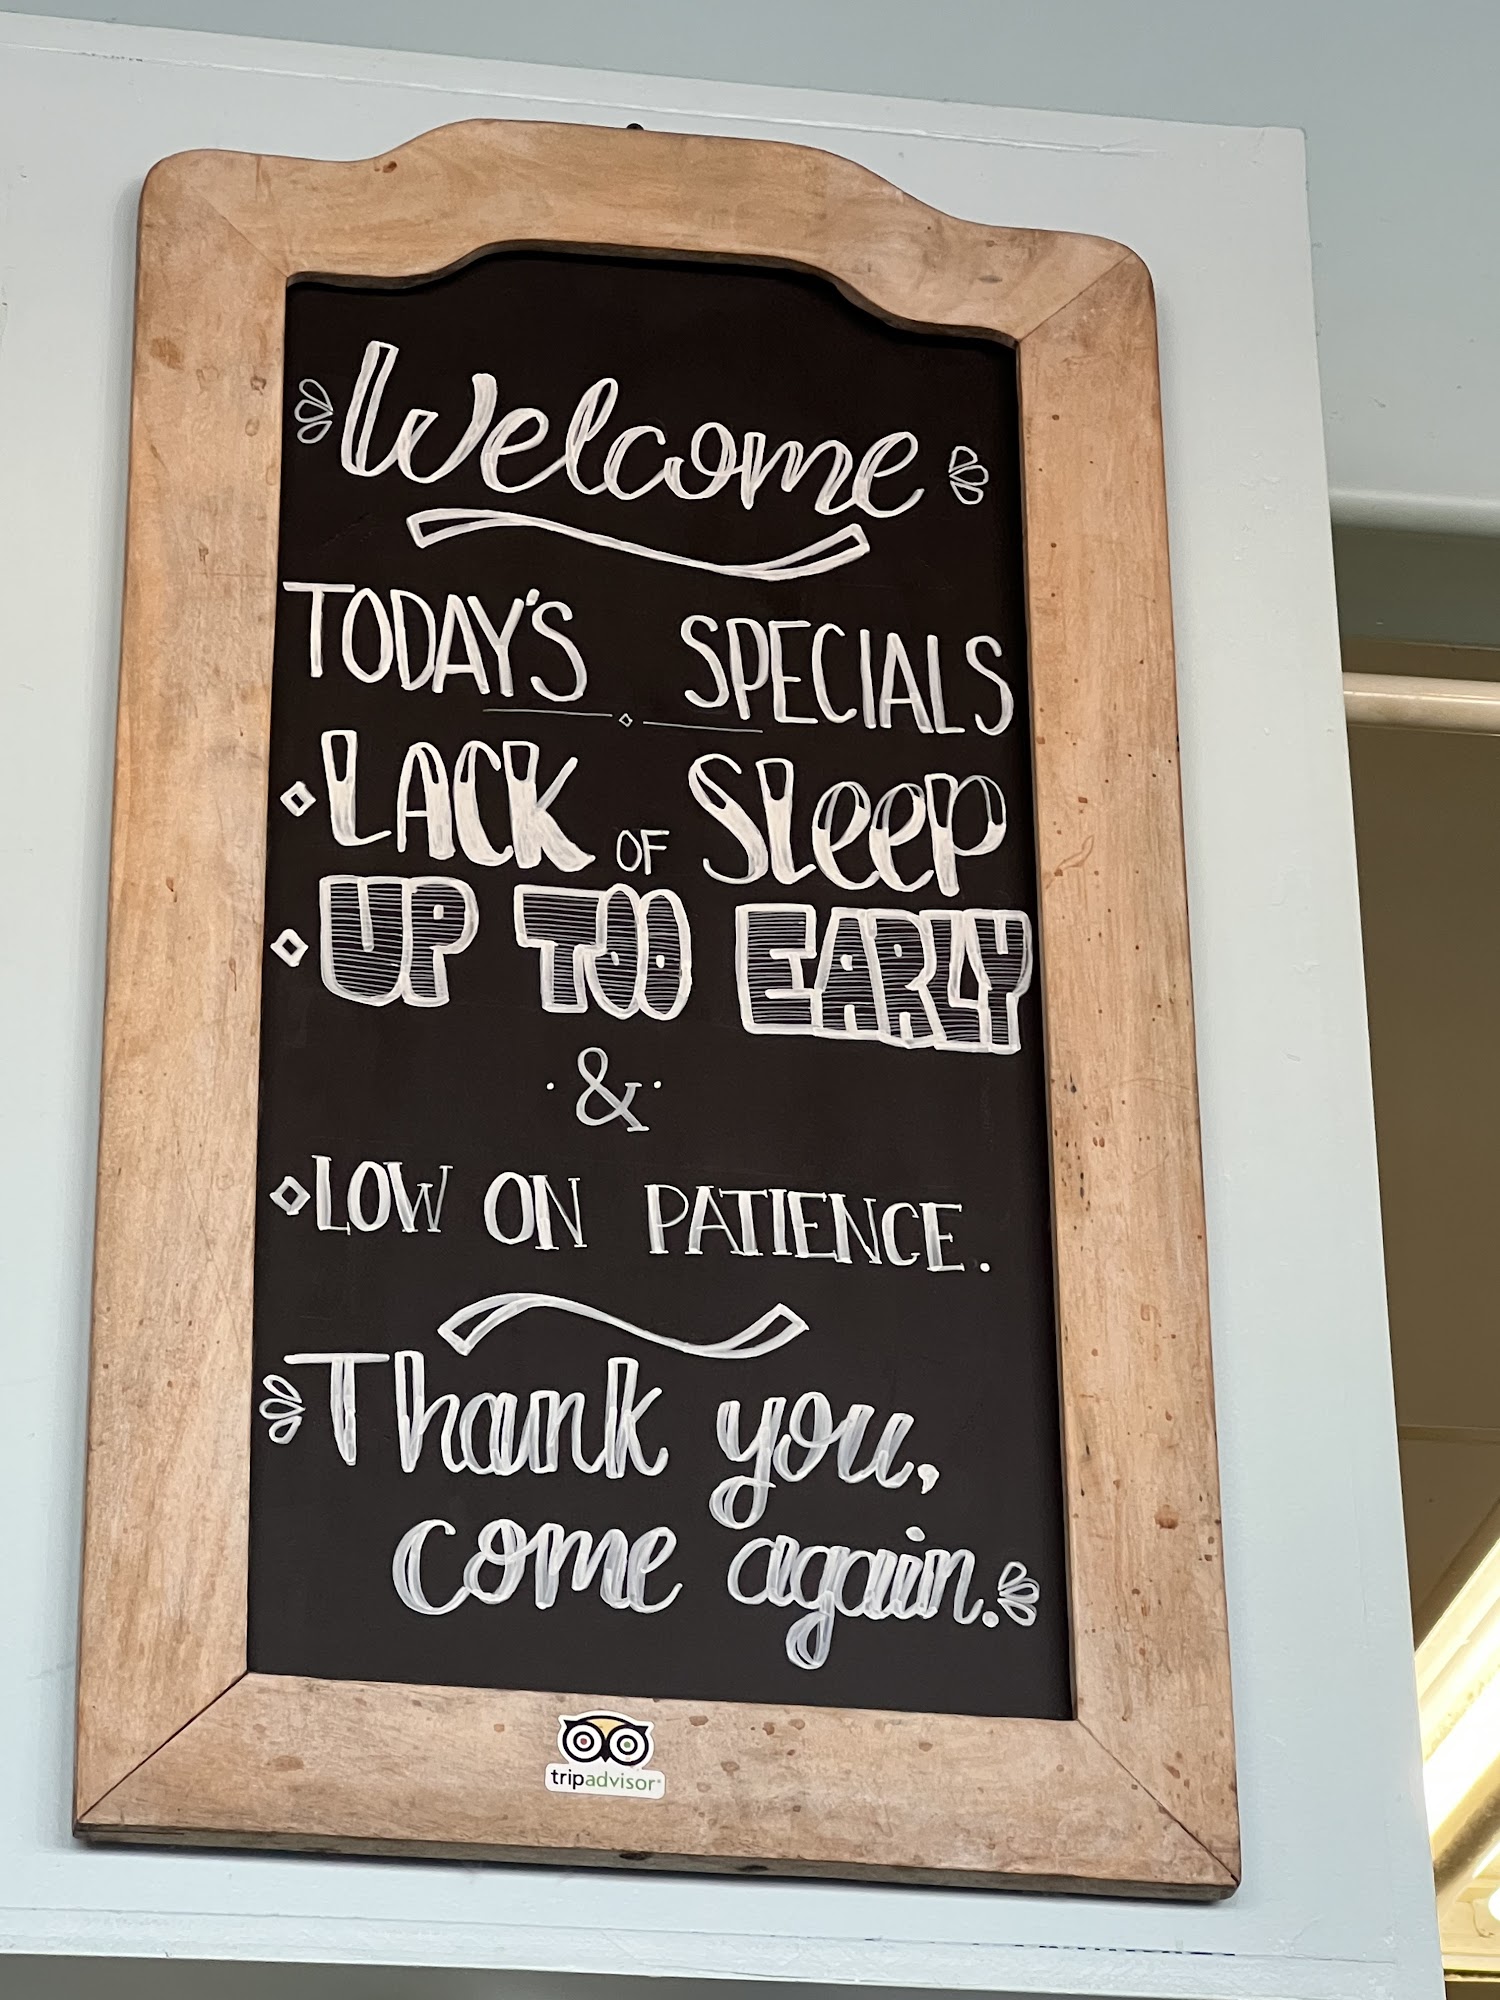 Welcome
TODAY'S SPECIALS
LACK OF SLeeP
UP TOO EARLY
&
LOW ON PATIENCE.
Thank you,
come again.
tripadvisor®